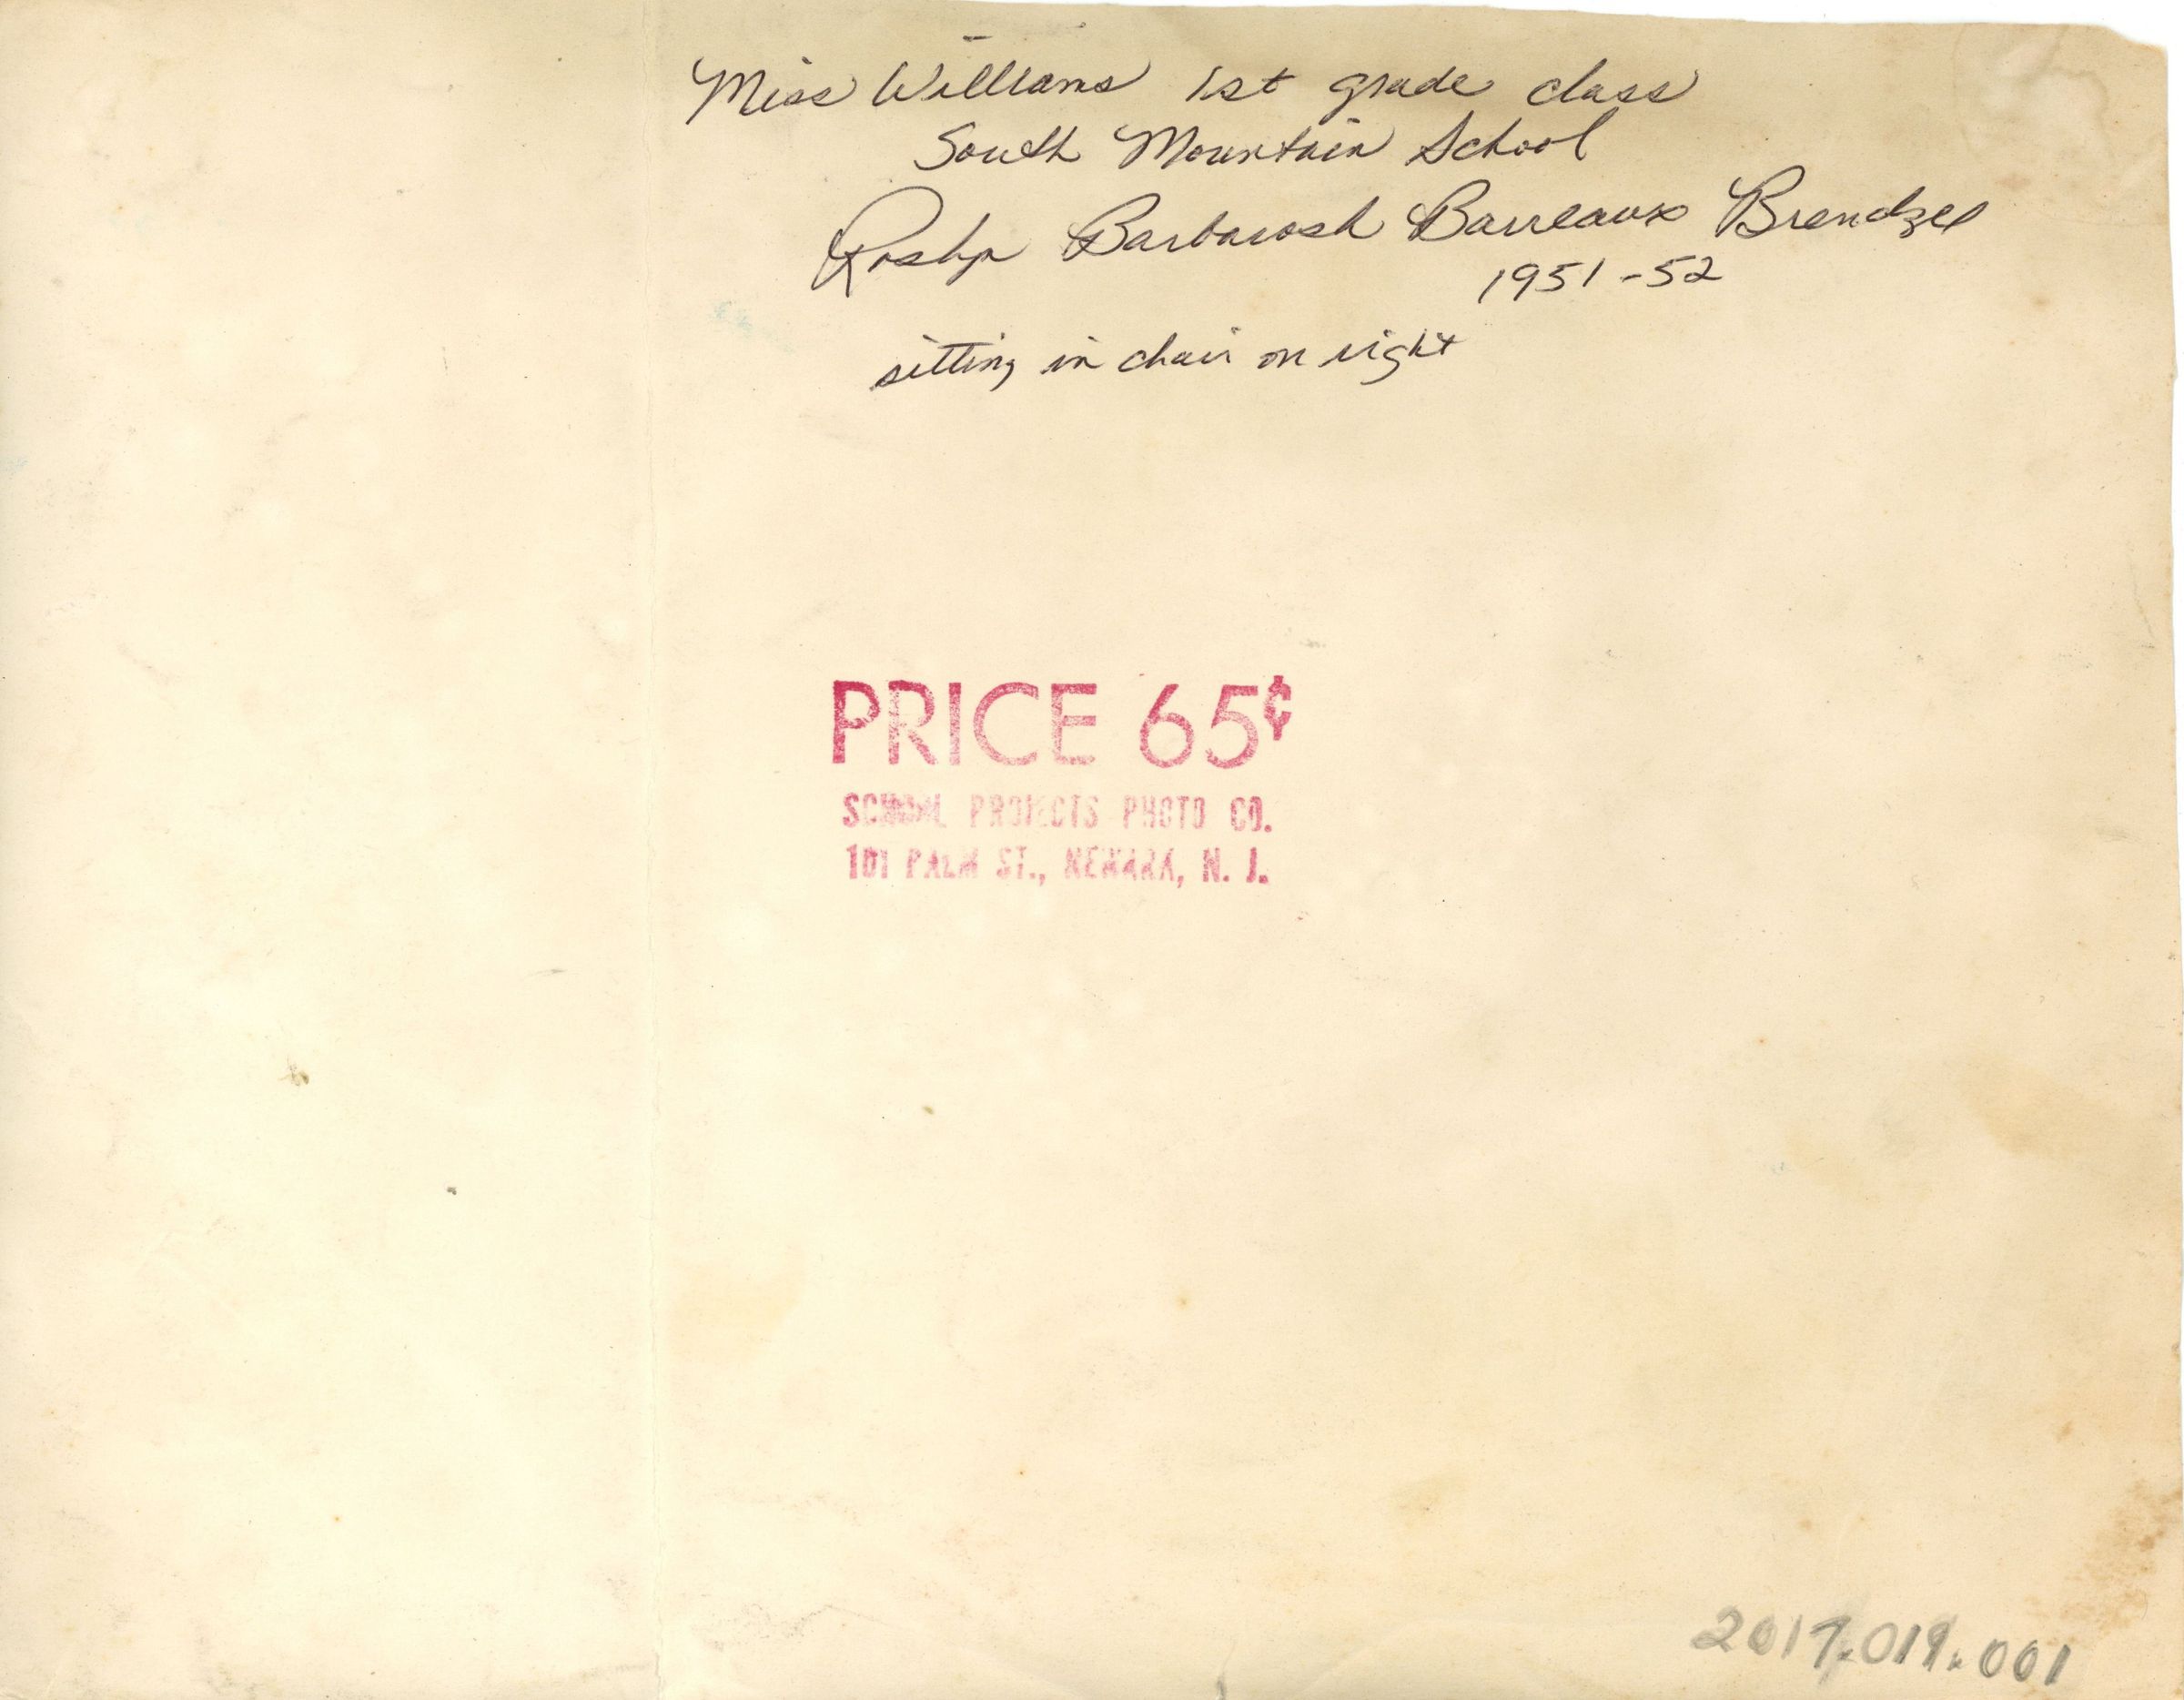 Miss Williams 1st grade class
South Mountain School
Barbarosh Barreaux Brendzel
1951-52
sitting in chair on right
PRICE 65¢
SCHOOL PROJECTS PHOTO CO.
101 PALM ST., NEWARK, N. J.
2017.019.001